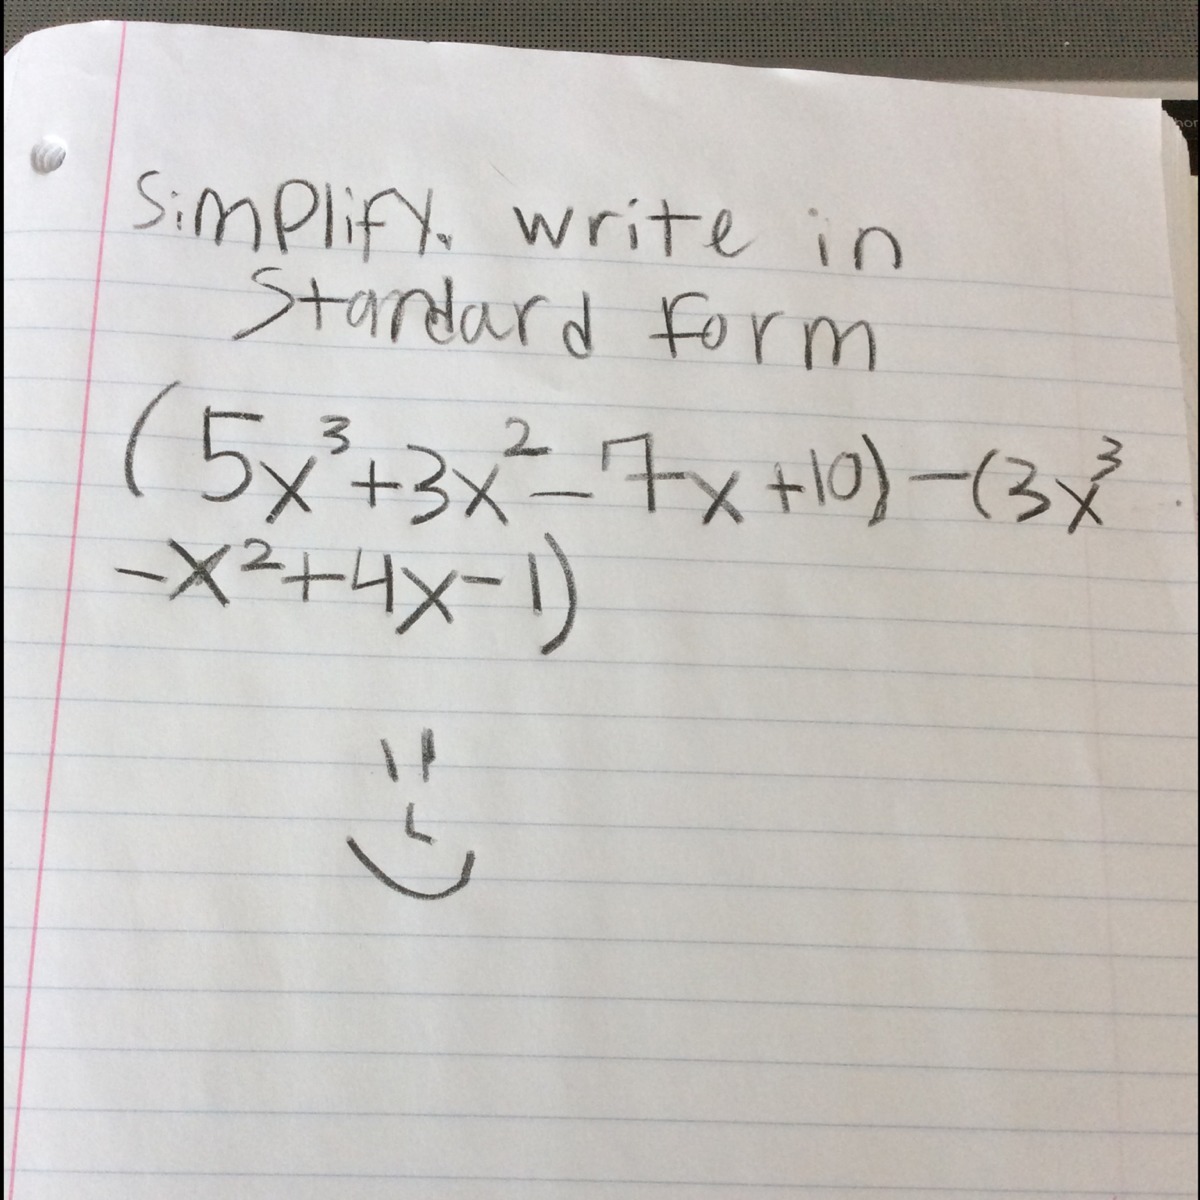 Simplify. write in
Standard form
(5x³+3x²-7x+10)-(3x³
-x²+4x-1)